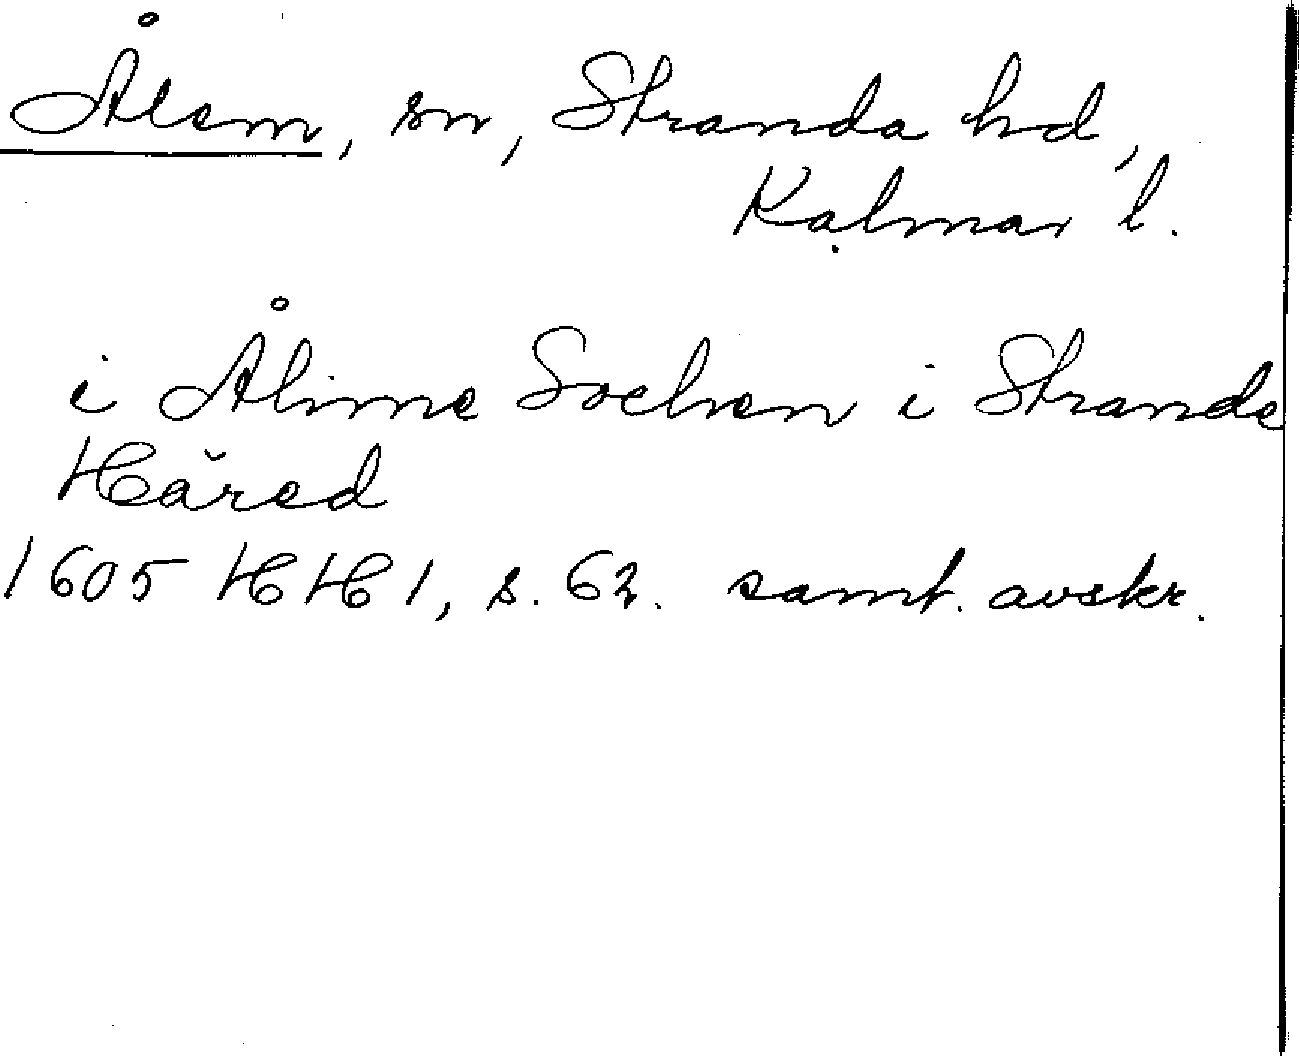 Ålem, sn, Stranda hd,
Kalmar l.
i Ålime Sochen i Strande
Härед
1605 HH 1, s. 62. samt. avskr.